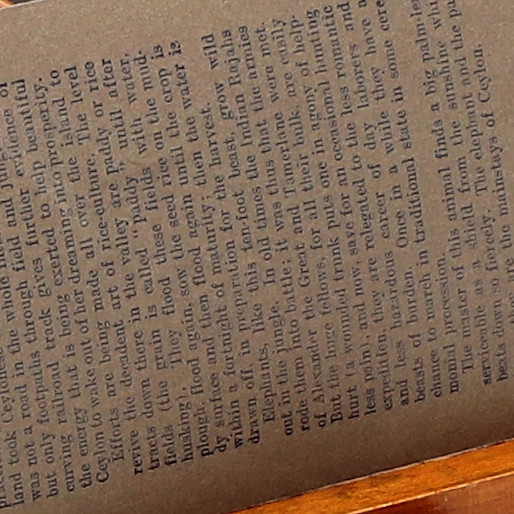 land took Ceylonese
was not a road in the whole
but only footpaths through field and jungle. Of
curving railroad track gives further evidence of
the energy that is being exerted to help beautiful
Ceylon to wake out of her dreaming into prosperity.
Efforts are being made all over the island to
revive the decadent art of rice-culture. The level
tracts down here in the valley are paddy or rice
fields (the grain is called "paddy" until after
husking). They flood these fields with water,
plough, flood again, sow the seed rice on the mud-
dy surface and then flood again until the water is
within a fortnight of maturity; then the crop is
drawn off, in preparation for the harvest.
Elephants, like this ten-foot beast, grow wild
out in the jungle. In old times the Indian Rajahs
rode them into battle; it was thus that the armies
of Alexander the Great and Tamerlane were met.
But the huge fellows, for all their bulk, are easily
hurt (a wounded trunk puts one in agony of help-
less pain), and now, save for an occasional hunting
expedition, they are relegated to the less romantic
and less hazardous career of day laborers and
beasts of burden. Once in a while they have a
chance to march in traditional state in some cere-
monial procession.
The master of this animal finds a big palm-leaf
serviceable as a shield from the sunshine
beats down so fiercely. The elephant and the
the mainstays of Ceylon.